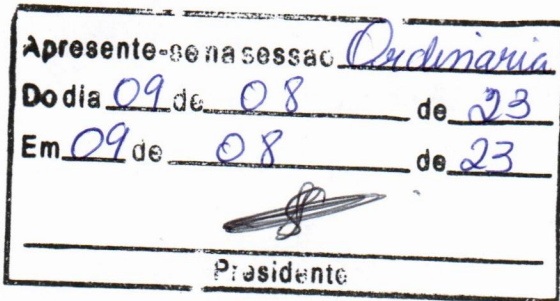 Apresente-se na sessao Ordinaria
Do dia 09 de 08 de 23
Em 09 de 08 de 23
Presidente